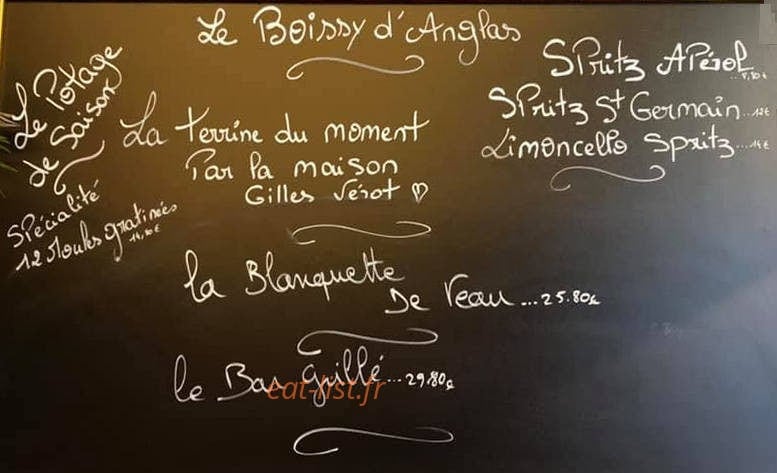 Le Boissy d'Anglas
Le Potage
de Saison
Spécialité
12 Moules gratinées
14,80€
La terrine du moment
Par la maison
Gilles Vérot ♡
la Blanquette
De Veau...25.80€
le Bar grillé...29.80€
SPritz APérol
SPritz St Germain...12€
Limoncello Spritz...14€
eat-list.fr